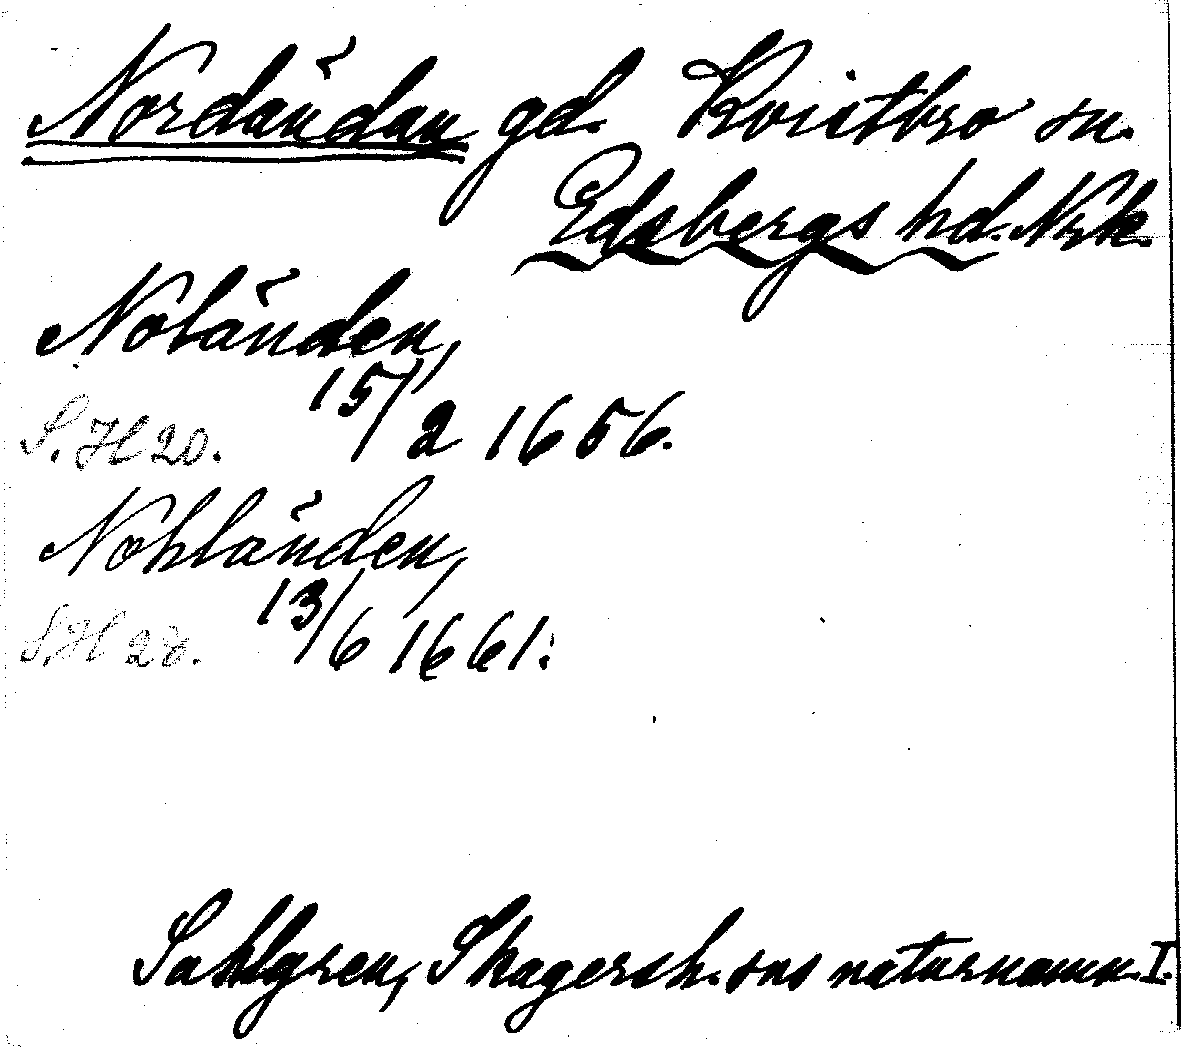 Nordändan gd. Kvistbro sn.
Edsbergs hd. Nrk.
Noländen,
15/2 1656.
S.H 20.
Nohländen,
13/6 1661.
S.H 28.
Sahlgren, Skagersh. sns naturnamn I.